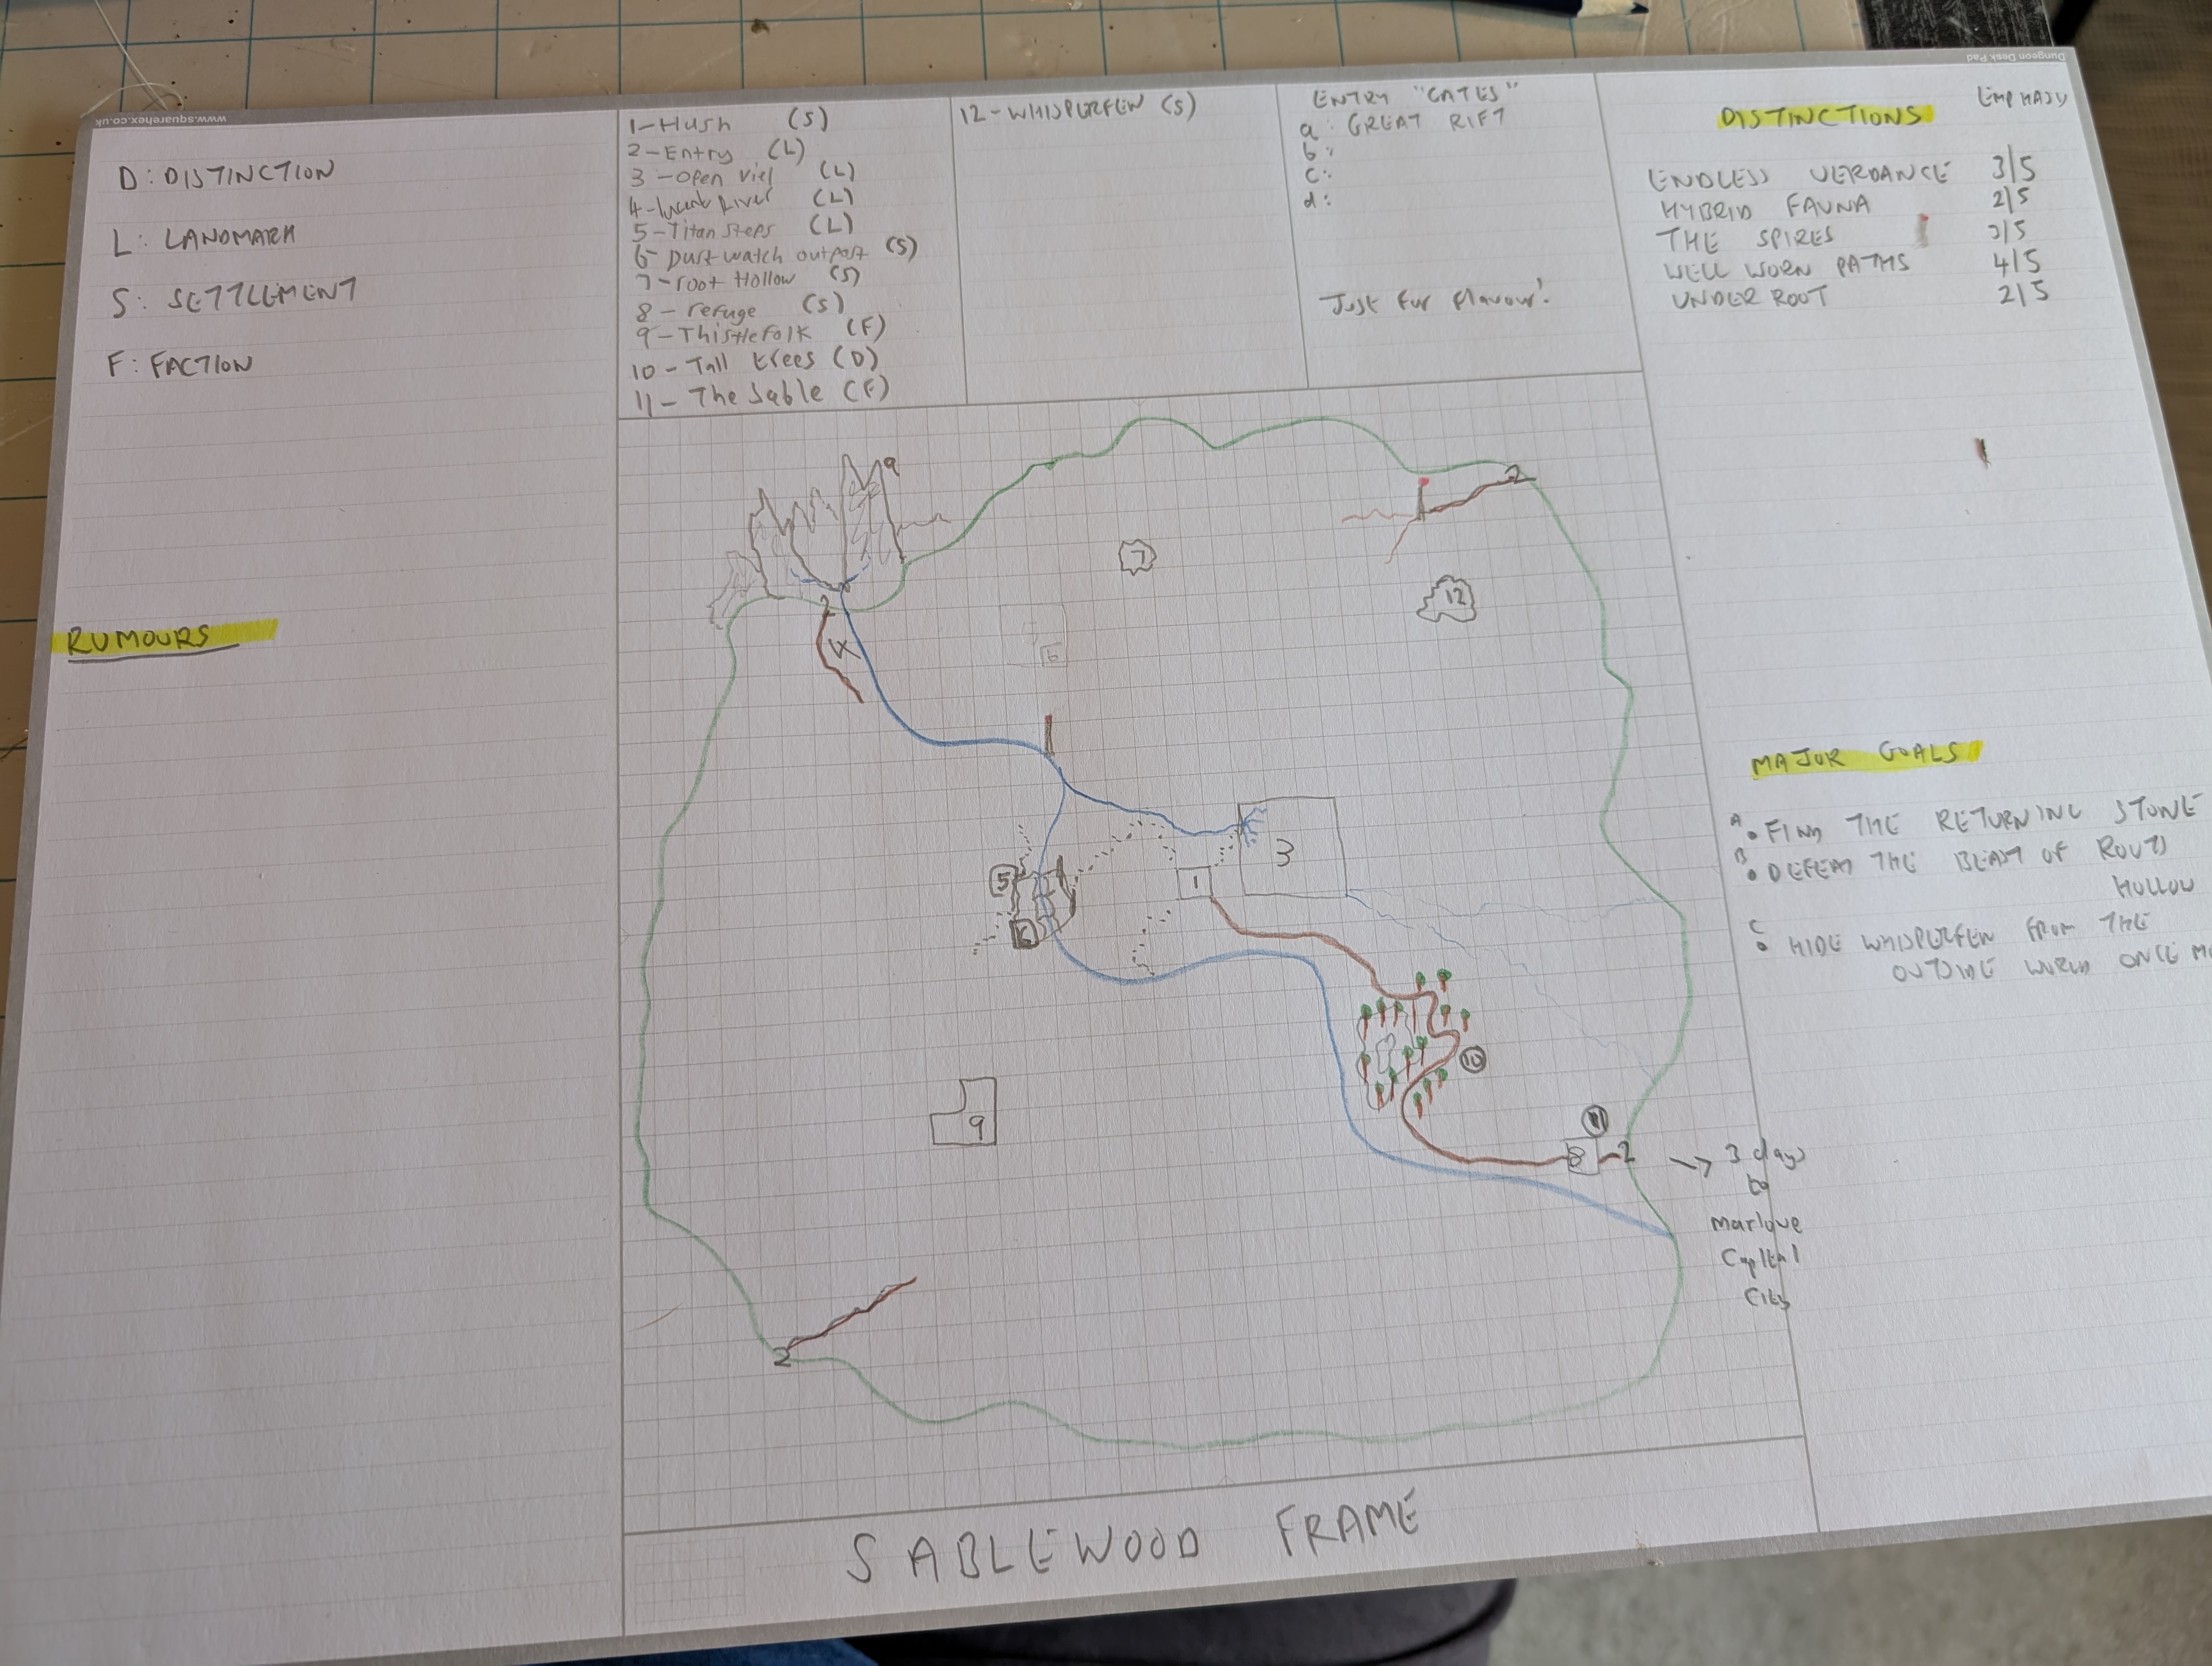 www.squarehex.co.uk
Dungeon Desk Pad
D: DISTINCTION
L: LANDMARK
S: SETTLEMENT
F: FACTION
RUMOURS
1-Hush (S)
2-Entry (L)
3-Open Viel (L)
River (L)
5-Titan Steps (L)
6- Dust watch outpost (S)
7-root Hollow (S)
8-refuge (S)
9-Thistlefolk (F)
10-Tall trees (D)
11-The Sable (F)
12-WHISPERFEN (S)
ENTRY "GATES"
a: GREAT RIFT
b:
c:
d:
Just for flavour!
DISTINCTIONS EMPHASIS
ENDLESS VERDANCE 3/5
HYBRID FAUNA 2/5
THE SPIRES 3/5
WELL WORN PATHS 4/5
UNDERROOT 2/5
MAJOR GOALS
A. FIND THE RETURNING STONE
B. DEFEAT THE BEAST OF ROOTS
HOLLOW
C. HIDE WHISPERFEN FROM THE
OUTSIDE WORLD ONCE
a
2
7
12
2
4
6
3
5
1
6
10
9
11
8
2
→ 3 days
to
Marlowe
Capital
City
2
SABLEWOOD FRAME